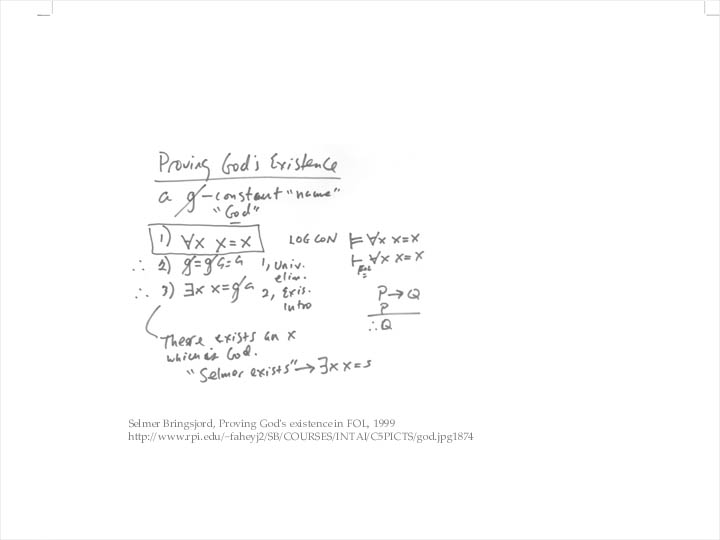 Proving God's Existence
a g – constant "name"
"God"
1) ∀x x=x
LOGCON ⊨ ∀x x=x
∴ 2) g=g a=a 1, Univ. elim.
⊢ ∀x x=x
FOL
∴ 3) ∃x x=g a 2, Exis. intro
P→Q
P
∴ Q
There exists an x
which is God.
"Selmer exists" → ∃x x=s
Selmer Bringsjord, Proving God's existence in FOL, 1999
http://www.rpi.edu/~faheyj2/SB/COURSES/INTAI/C5PICTS/god.jpg1874